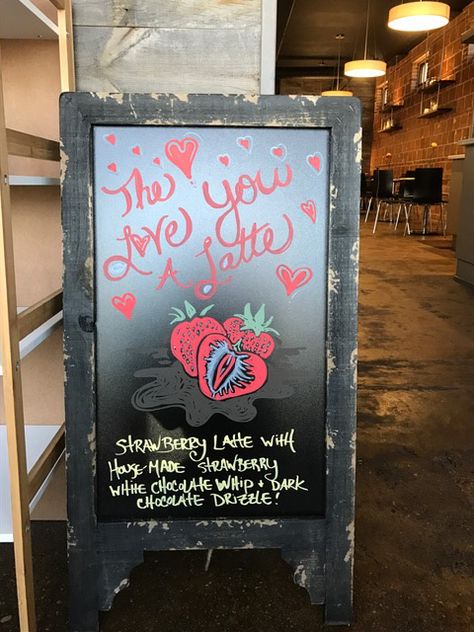 The I
Love You
A Latte
STRAWBERRY LATTE WITH
HOUSE-MADE STRAWBERRY
WHITE CHOCOLATE WHIP + DARK
CHOCOLATE DRIZZLE!